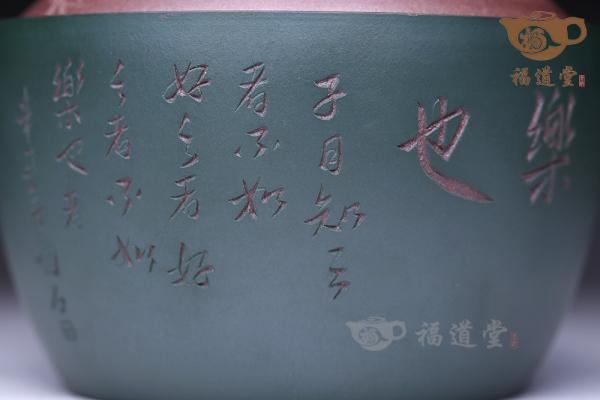 樂
也
子曰知之
者不如
好之者好
之者不如
樂之者
福道堂
福道堂